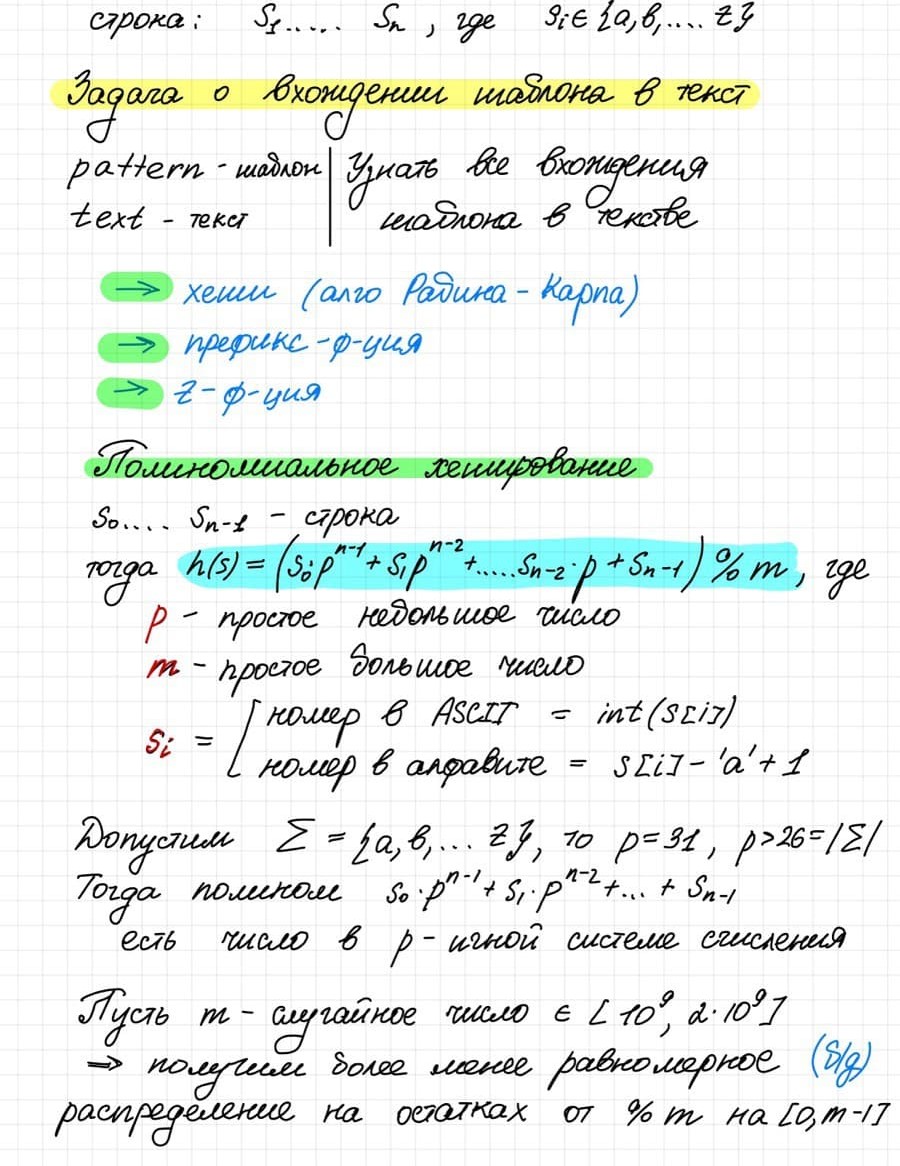 строка: S₁..... Sₙ, где Sᵢ∈{a,b,.... z}
Задача о вхождении шаблона в текст
pattern - шаблон | Узнать все вхождения
text - текст | шаблона в текстве
→ хеши (алго Рабина - Карпа)
→ префикс-ф-ция
→ z-ф-ция
Полиномиальное хеширование
S₀.... Sₙ₋₁ - строка
тогда h(s) = (S₀·pⁿ⁻¹ + S₁pⁿ⁻² +.....Sₙ₋₂·p + Sₙ₋₁) % m, где
p - простое небольшое число
m - простое большое число
Sᵢ = [ номер в ASCII = int(S[i])
номер в алфавите = S[i] - 'a' + 1
Допустим Σ = {a,b,... z}, то p=31, p>26=|Σ|
Тогда полином S₀·pⁿ⁻¹ + S₁·pⁿ⁻² +... + Sₙ₋₁
есть число в p-ичной системе счисления
Пусть m - случайное число ∈ [10⁹, 2·10⁹]
⇒ получим более менее равномерное (б/д)
распределение на остатках от % m на [0, m-1]